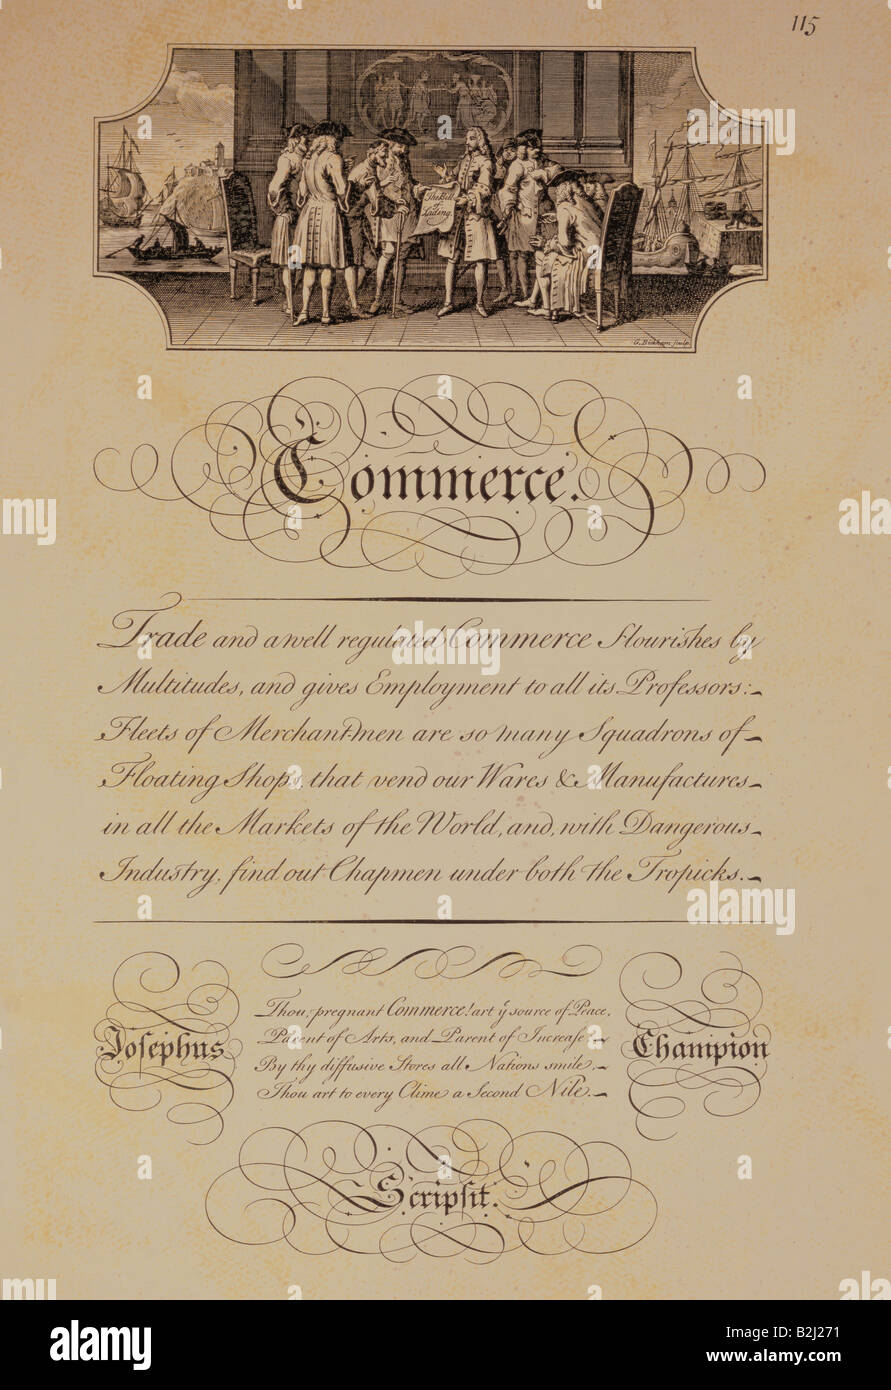 115
The Bill
of
Lading.
G. Bickham sculp.
Commerce.
Trade and a well regulated Commerce flourishes by
Multitudes, and gives Employment to all its Professors:
Fleets of Merchantmen are so many Squadrons of
Floating Shops, that vend our Wares & Manufactures
in all the Markets of the World, and, with Dangerous
Industry, find out Chapmen under both the Tropicks.
Thou, pregnant Commerce! art yͤ source of Peace,
Parent of Arts, and Parent of Increase:
By thy diffusive Stores all Nations smile,
Thou art to every Clime a Second Nile.
Joſephus
Champion
Scripſit.
alamy
Image ID: B2J271
www.alamy.com